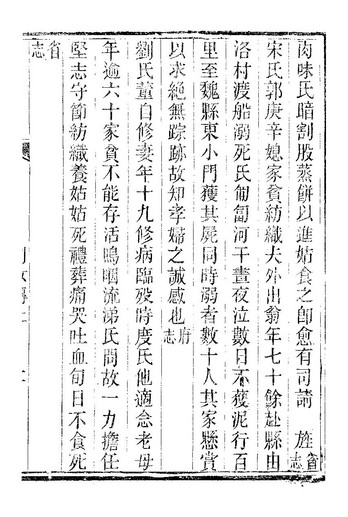 肉味氏暗割股蒸餅以進姑食之卽愈有司請　旌省志
宋氏郭庚辛媳家貧紡織夫外出翁年七十餘赴縣由
洛村渡船溺死氏匍匐河干晝夜泣數日不獲泥行百
里至魏縣東小門獲其屍同時溺者數十人其家懸賞
以求絕無踪跡故知孝婦之誠感也府志
劉氏董自修妻年十九修病臨歿時度氏他適念老母
年逾六十家貧不能存活鳴咽流涕氏問故一力擔任
堅志守節紡織養姑姑死禮葬痛哭吐血旬日不食死
省志
列女傳上